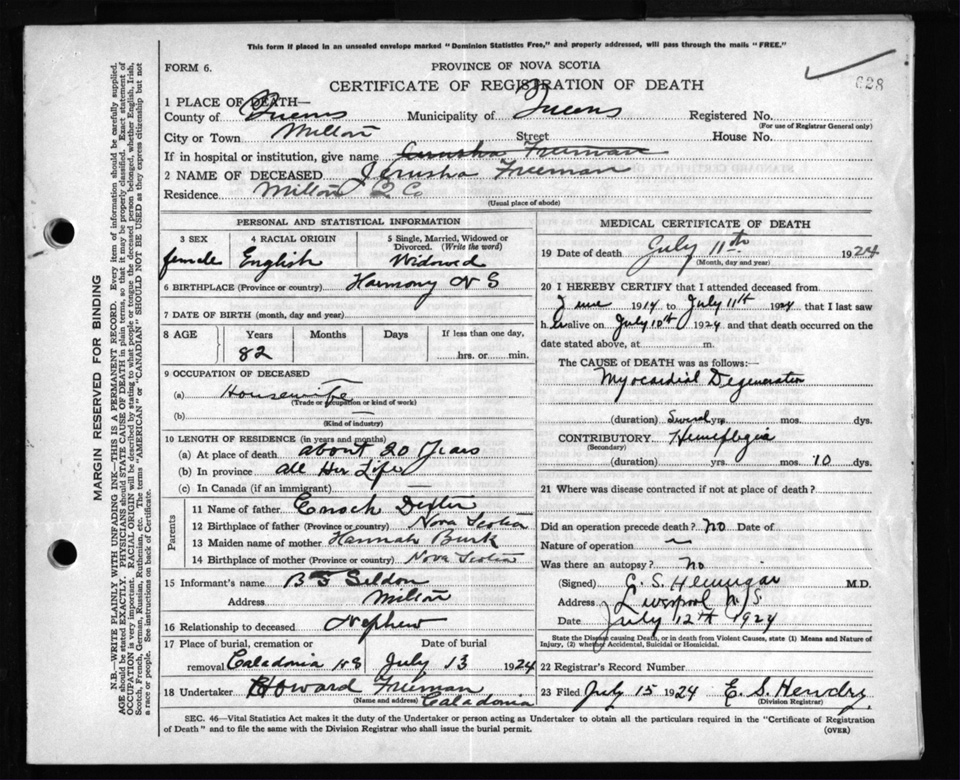 This form if placed in an unsealed envelope marked "Dominion Statistics Free," and properly addressed, will pass through the mails "FREE."
FORM 6.
PROVINCE OF NOVA SCOTIA
CERTIFICATE OF REGISTRATION OF DEATH
628
1 PLACE OF DEATH—
County of Queens Municipality of Queens Registered No.
(For use of Registrar General only)
City or Town Milton Street House No.
If in hospital or institution, give name Jerusha Freeman
2 NAME OF DECEASED Jerusha Freeman
Residence Milton Q Co
(Usual place of abode)
PERSONAL AND STATISTICAL INFORMATION
3 SEX 4 RACIAL ORIGIN 5 Single, Married, Widowed or Divorced. (Write the word)
female English Widowed
6 BIRTHPLACE (Province or country) Harmony N S
7 DATE OF BIRTH (month, day and year)
8 AGE Years Months Days If less than one day,
82 hrs. or min.
9 OCCUPATION OF DECEASED
(a) Housewife
(Trade or occupation or kind of work)
(b) —
(Kind of industry)
10 LENGTH OF RESIDENCE (in years and months)
(a) At place of death about 20 Years
(b) In province all Her Life
(c) In Canada (if an immigrant)
Parents
11 Name of father Enoch Dexter
12 Birthplace of father (Province or country) Nova Scotia
13 Maiden name of mother Hannah Burk
14 Birthplace of mother (Province or country) Nova Scotia
15 Informant's name B F Seldon
Address Milton
16 Relationship to deceased Nephew
17 Place of burial, cremation or removal Caladonia NS Date of burial July 13 1924
18 Undertaker Howard Freeman
(Name and address) Caladonia
MEDICAL CERTIFICATE OF DEATH
19 Date of death July 11th 1924
(Month, day and year)
20 I HEREBY CERTIFY that I attended deceased from
June 1914 to July 11th 1924 that I last saw
h er alive on July 10th 1924 and that death occurred on the
date stated above, at m.
The CAUSE of DEATH was as follows:
Myocardial Degeneration
(duration) Several yrs. mos. dys.
CONTRIBUTORY Hemeplegia
(Secondary)
(duration) yrs. mos. 10 dys.
21 Where was disease contracted if not at place of death?
Did an operation precede death? no Date of
Nature of operation —
Was there an autopsy? no
(Signed) C. S. Hennigar M.D.
Address Liverpool N S
Date July 12th 1924
State the Disease causing Death, or in death from Violent Causes, state (1) Means and Nature of
Injury, (2) whether Accidental, Suicidal or Homicidal.
22 Registrar's Record Number
23 Filed July 15 1924 E. S. Hendry
(Division Registrar)
SEC. 46—Vital Statistics Act makes it the duty of the Undertaker or person acting as Undertaker to obtain all the particulars required in the "Certificate of Registration
of Death" and to file the same with the Division Registrar who shall issue the burial permit.
(OVER)
MARGIN RESERVED FOR BINDING
N.B.—WRITE PLAINLY WITH UNFADING INK—THIS IS A PERMANENT RECORD. Every item of information should be carefully supplied.
AGE should be stated EXACTLY. PHYSICIANS should STATE CAUSE OF DEATH in plain terms, so that it may be properly classified. Exact statement of
OCCUPATION is very important. RACIAL ORIGIN will be described by stating to what people or tongue the deceased person belonged, whether English, Irish,
Scotch, French, German, Russian, Ruthenian, etc. The terms "AMERICAN" or "CANADIAN" SHOULD NOT BE USED as they express citizenship but not
a race or people. See instructions on back of Certificate.